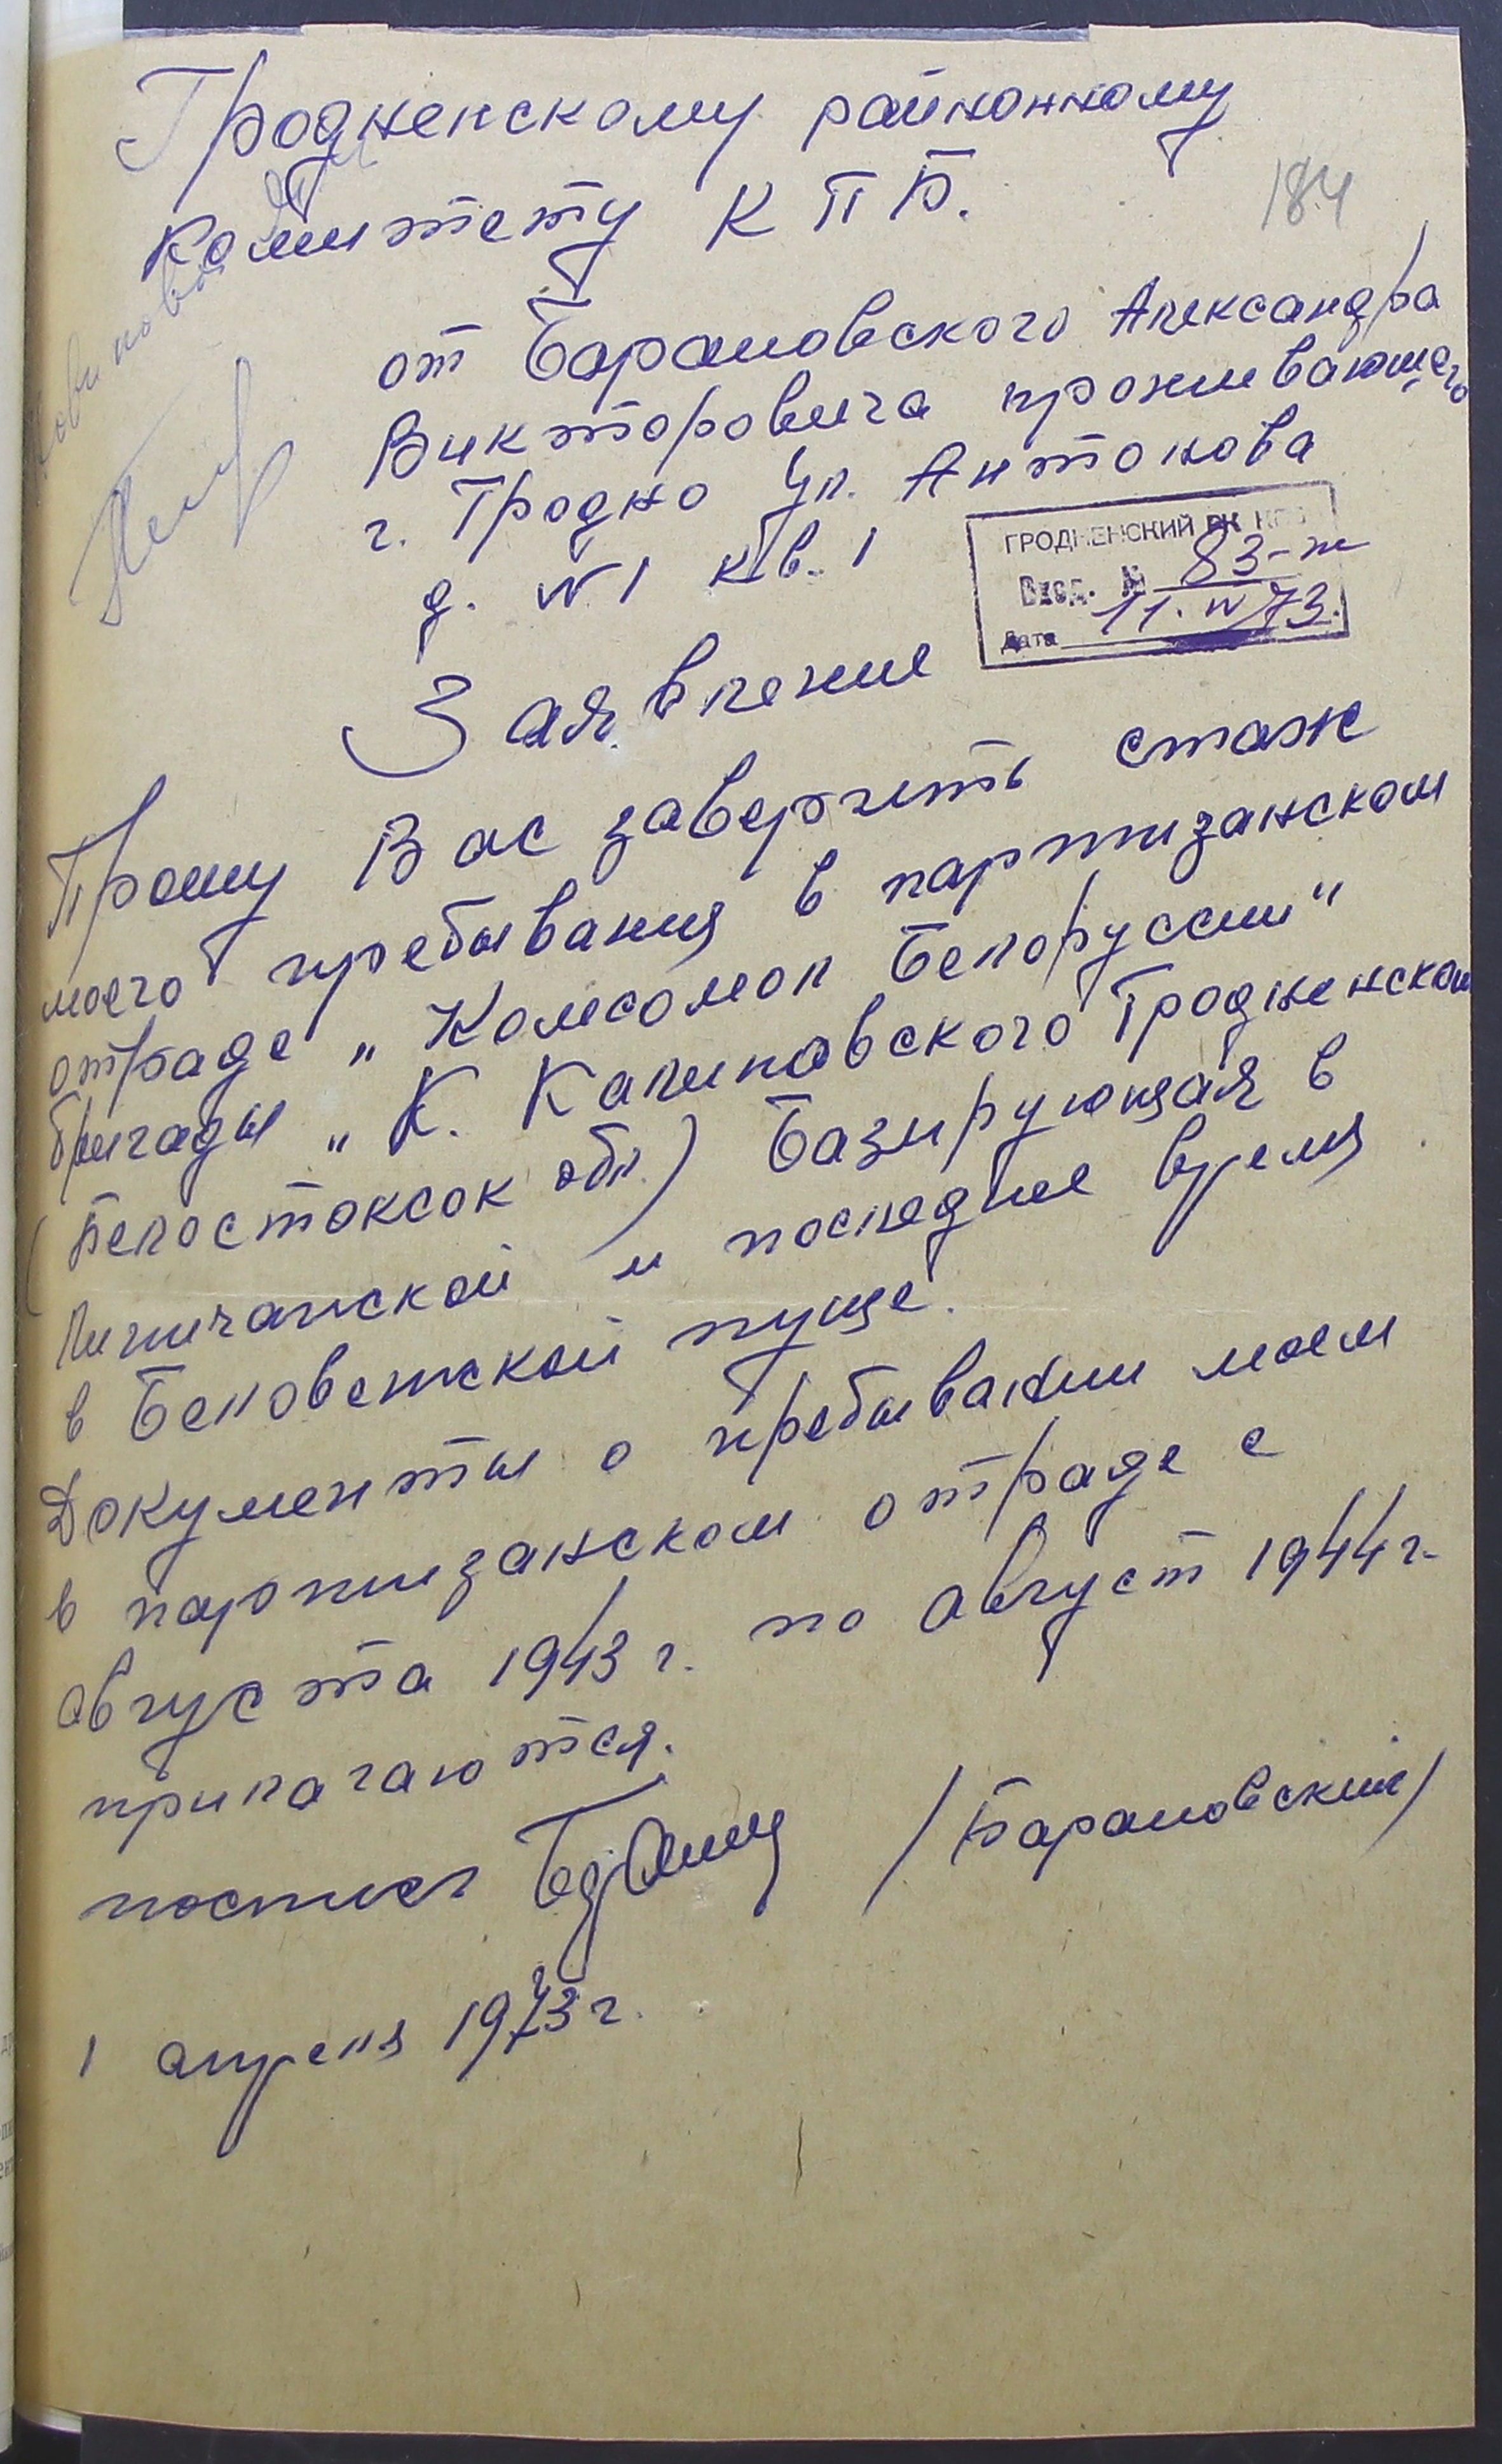 Гродненскому районному
комитету КПБ.
184
от Барановского Александра
Викторовича проживающего
г. Гродно ул. Антонова
д. N 1 кв. 1
ГРОДНЕНСКИЙ РК КПБ
Вход. № 83-т
Дата 11.IV 73.
Заявление
Прошу Вас заверить стаж
моего пребывания в партизанском
отраде „Комсомол Белоруссии"
бригады „К. Калиновского Гродненской
(Белостоксок обл.) Базирующая в
Липичанской и последнее время
в Беловежской пуще.
Документы о пребывании моем
в партизанском отраде с
августа 1943 г. по август 1944 г.
прилагаются.
/Барановский/
1 апреля 1973 г.